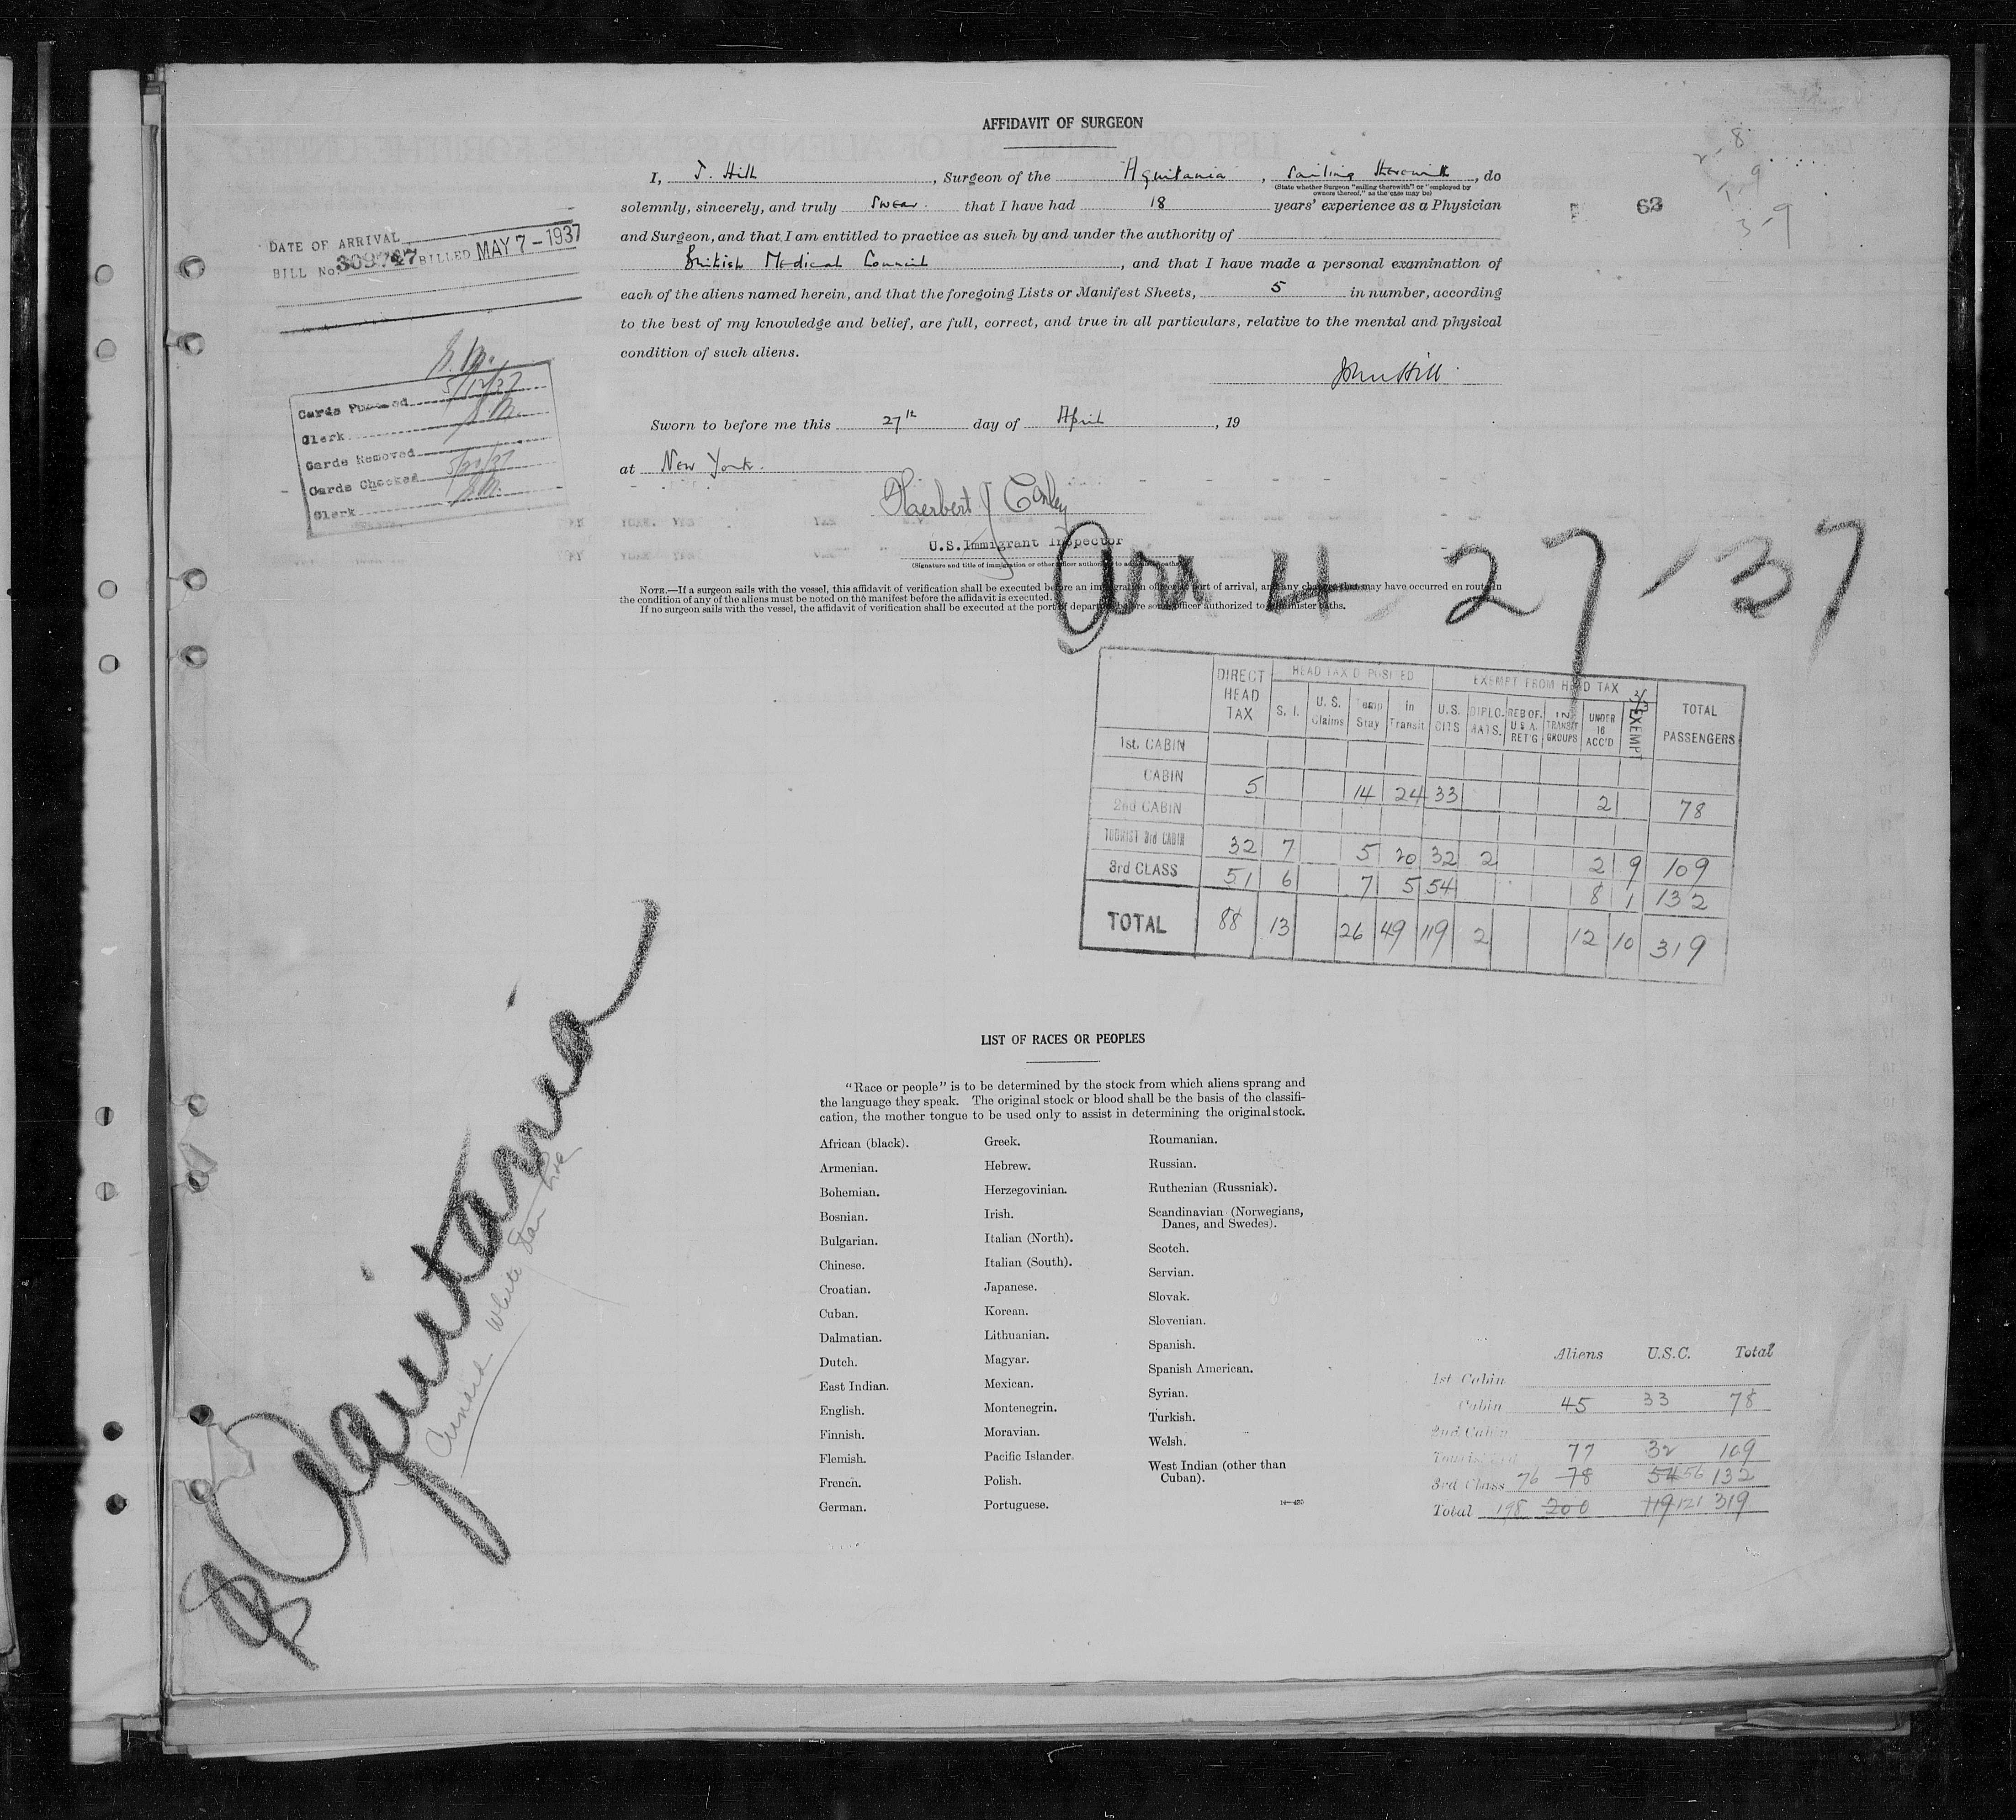 AFFIDAVIT OF SURGEON
I, J. Hill, Surgeon of the Aquitania, sailing therewith, do
(State whether Surgeon "sailing therewith" or "employed by
owners thereof," as the case may be)
solemnly, sincerely, and truly swear that I have had 18 years' experience as a Physician
and Surgeon, and that I am entitled to practice as such by and under the authority of
British Medical Council, and that I have made a personal examination of
each of the aliens named herein, and that the foregoing Lists or Manifest Sheets, 5 in number, according
to the best of my knowledge and belief, are full, correct, and true in all particulars, relative to the mental and physical
condition of such aliens.
John Hill
Sworn to before me this 27th day of April, 19
at New York.
Herbert J Conley
U.S. Immigrant Inspector
(Signature and title of immigration or other officer authorized to administer oaths)
NOTE.—If a surgeon sails with the vessel, this affidavit of verification shall be executed before an immigration officer at port of arrival, and any changes that may have occurred en route in
the condition of any of the aliens must be noted on the manifest before the affidavit is executed.
If no surgeon sails with the vessel, the affidavit of verification shall be executed at the port of departure before some officer authorized to administer oaths.
63
DATE OF ARRIVAL
BILL No. 309747 BILLED MAY 7-1937
S.M.
Cards Punched 5/12/37
Clerk S.M.
Cards Removed
Cards Checked 5/20/37
Clerk S.M.
Arr 4-27-37
DIRECT HEAD TAX HEAD TAX DEPOSITED EXEMPT FROM HEAD TAX TOTAL PASSENGERS
S. I. U. S. Claims Temp Stay in Transit U.S. CITS DIPLO. MATS. REB OF. U S A. RET'G IN TRANSIT GROUPS UNDER 16 ACC'D 3/3 EXEMPT
1st. CABIN
CABIN 5 14 24 33 2 78
2nd CABIN
TOURIST 3rd CABIN 32 7 5 20 32 2 2 9 109
3rd CLASS 51 6 7 5 54 8 1 132
TOTAL 88 13 26 49 119 2 12 10 319
Aquitania
Cunard White Star Line
LIST OF RACES OR PEOPLES
"Race or people" is to be determined by the stock from which aliens sprang and
the language they speak. The original stock or blood shall be the basis of the classifi-
cation, the mother tongue to be used only to assist in determining the original stock.
African (black).
Armenian.
Bohemian.
Bosnian.
Bulgarian.
Chinese.
Croatian.
Cuban.
Dalmatian.
Dutch.
East Indian.
English.
Finnish.
Flemish.
French.
German.
Greek.
Hebrew.
Herzegovinian.
Irish.
Italian (North).
Italian (South).
Japanese.
Korean.
Lithuanian.
Magyar.
Mexican.
Montenegrin.
Moravian.
Pacific Islander.
Polish.
Portuguese.
Roumanian.
Russian.
Ruthenian (Russniak).
Scandinavian (Norwegians,
Danes, and Swedes).
Scotch.
Servian.
Slovak.
Slovenian.
Spanish.
Spanish American.
Syrian.
Turkish.
Welsh.
West Indian (other than
Cuban).
14—430
Aliens U.S.C. Total
1st Cabin
Cabin 45 33 78
2nd Cabin
Tourist 3rd 77 32 109
3rd Class 76 78 54 56 132
Total 198 200 119 121 319